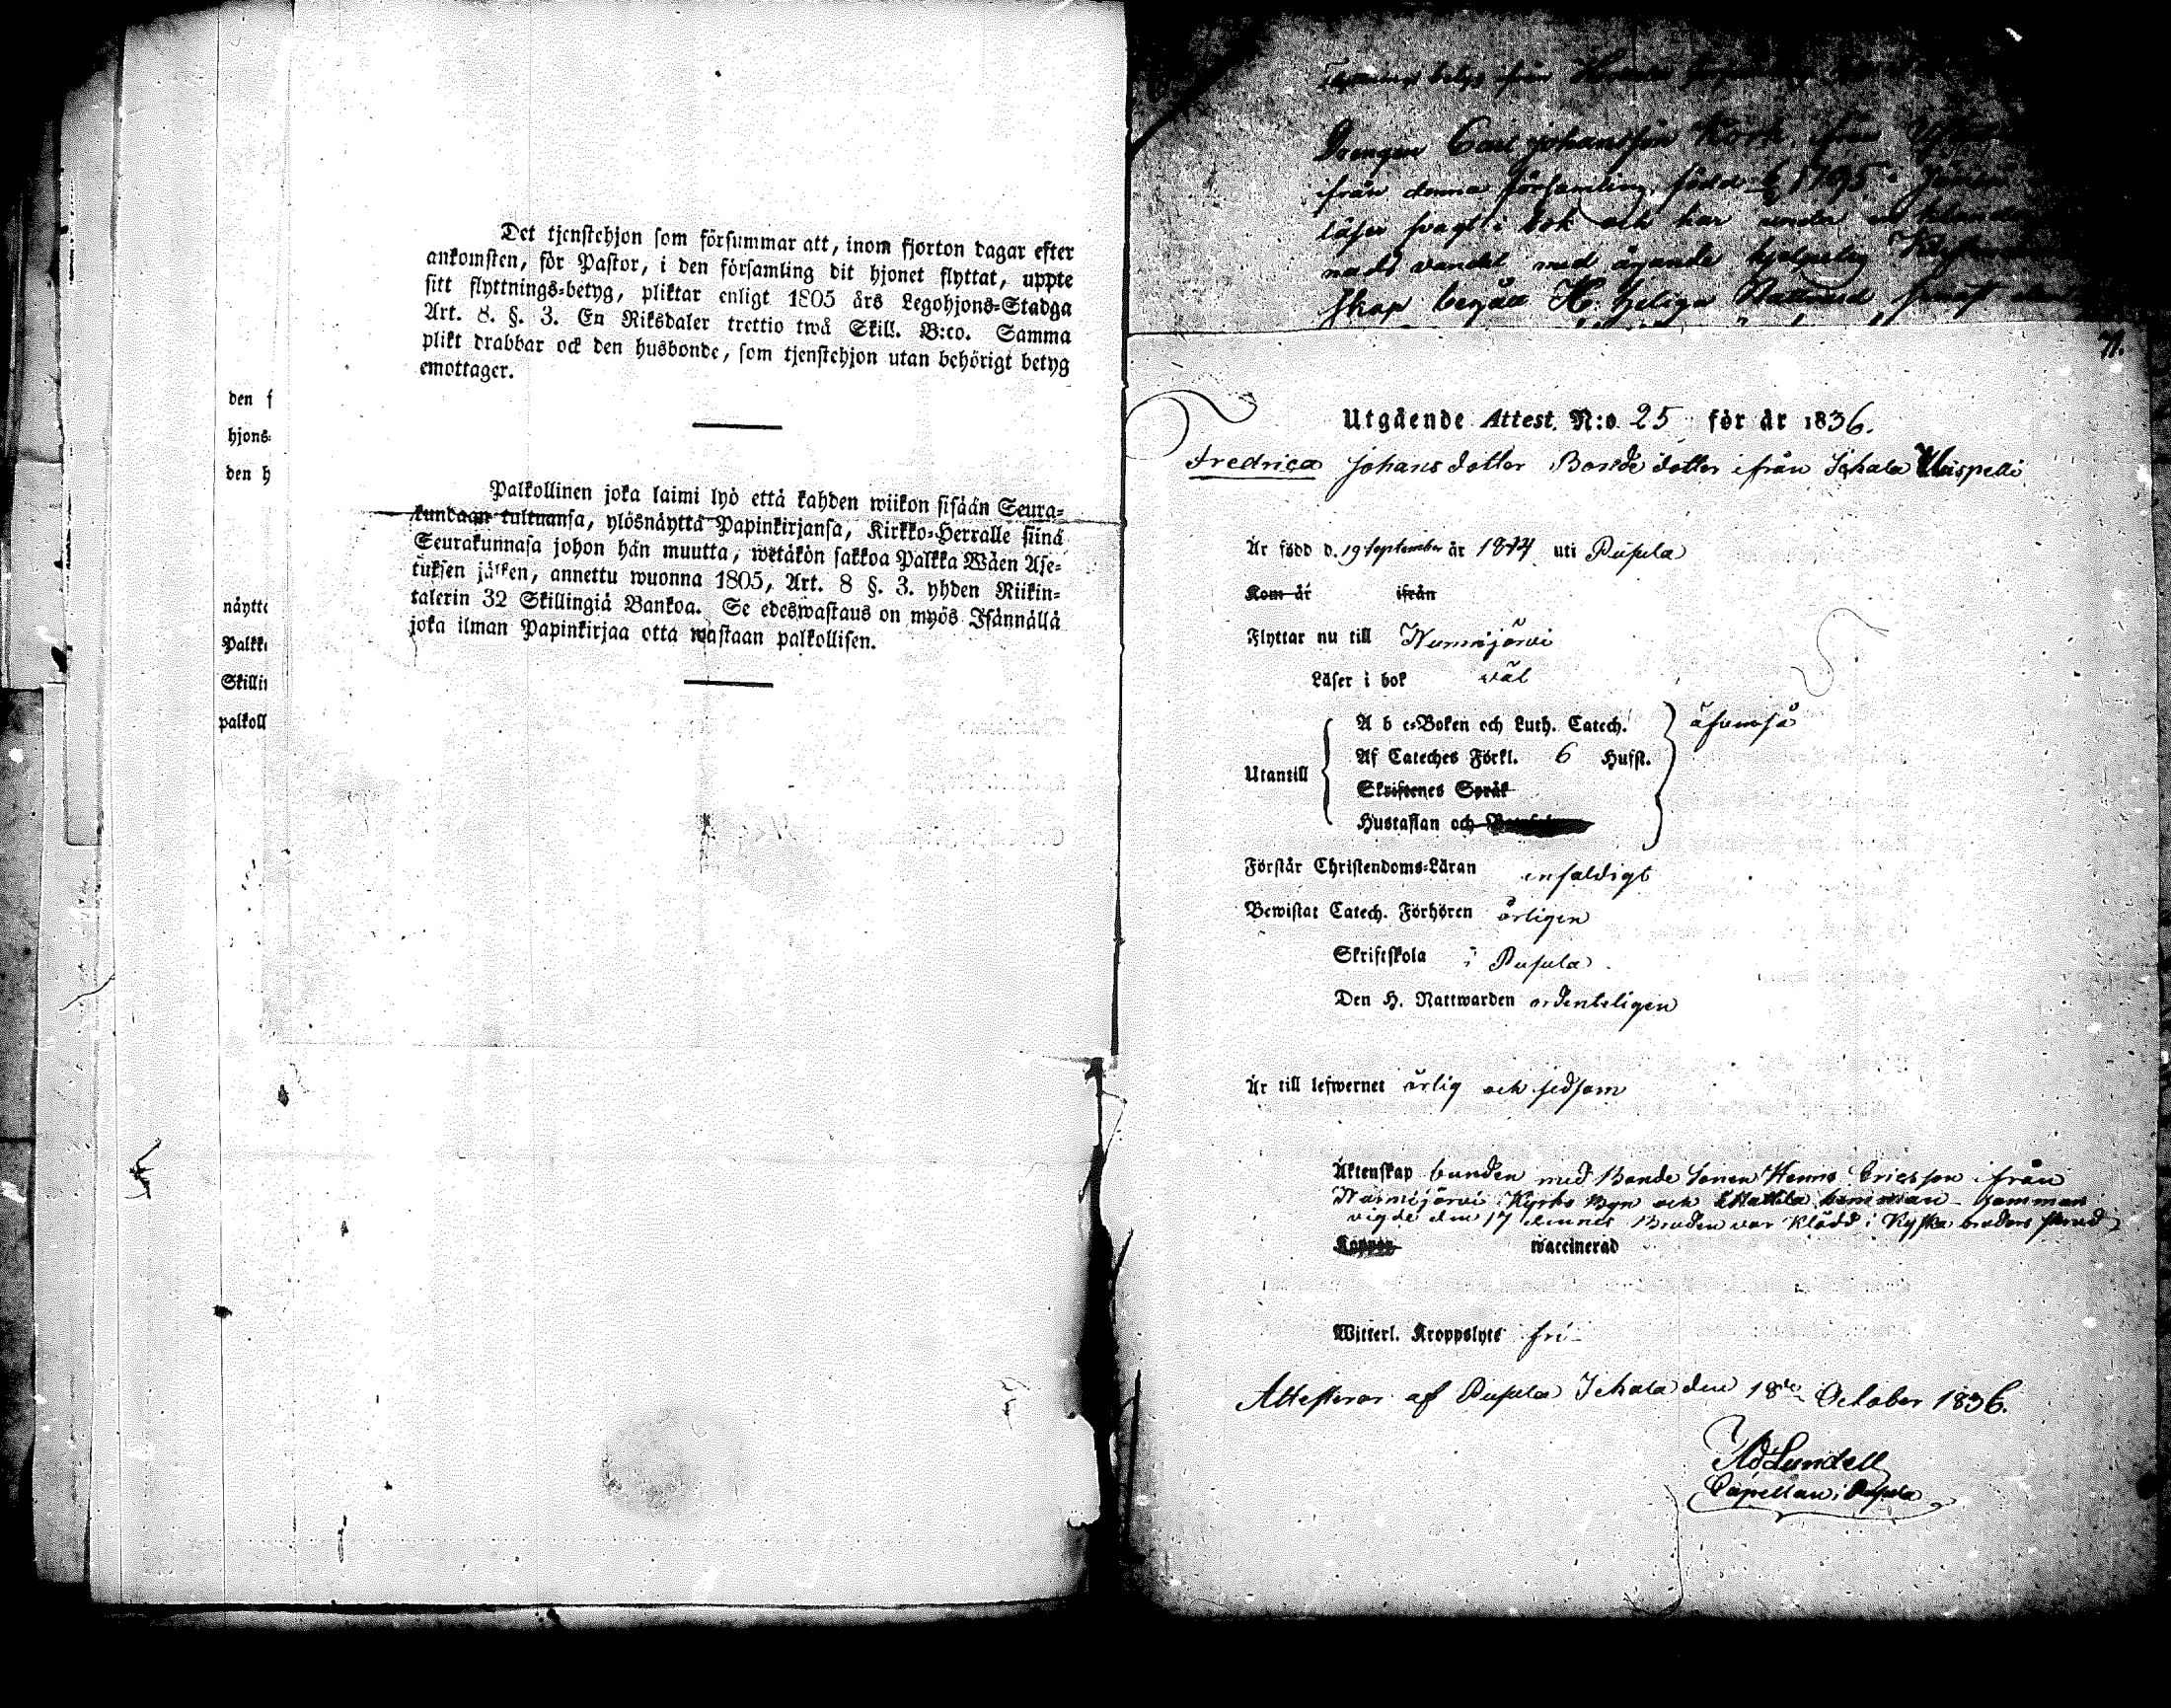 Det tjenstehjon som försummar att, inom fjorton dagar efter
ankomsten, för Pastor, i den församling dit hjonet flyttat, uppte
sitt flyttnings-betyg, pliktar enligt 1805 års Legohjons-Stadga
Art. 8. §. 3. En Riksdaler trettio twå Skill. B:co. Samma
plikt drabbar ock den husbonde, som tjenstehjon utan behörigt betyg
emottager.
Palkollinen joka laimi lyö että kahden wiikon sisään Seura-
kundaan tultuansa, ylösnäyttä Papinkirjansa, Kirkko-Herralle siinä
Seurakunnasa johon hän muutta, wetäkön sakkoa Palkka Wäen Ase-
tuksen jälken, annettu wuonna 1805, Art. 8 §. 3. yhden Riikin-
talerin 32 Skillingiä Bankoa. Se edeswastaus on myös Isännällä
joka ilman Papinkirjaa otta wastaan palkollisen.
den f
hjons-
den h
näytte
Palkk
Skillin
palkoll
Drengen Carl Johansson från
ifrån denna församling, född 1795
läser svagt i bok och har under
nads vandel med ägande hjelpelig
skap begått H. heliga Nattvard
71.
Utgående Attest. N:o 25 för år 1836.
Fredrica Johans dotter Bonde dotter ifrån Ichala
Är född d. 19 September år 1814 uti Pusula
Kom år ifrån
Flyttar nu till Nurmijärvi
Läser i bok väl
A b c-Boken och Luth. Catech. äfvenså
Af Cateches Förkl. 6 Hufst.
Utantill
Skriftenes Språk
Hustaflan och
Förstår Christendoms-Läran enfaldigt
Bewistat Catech. Förhören årligen
Skriftskola i Pusula
Den H. Nattwarden ordenteligen
Är till lefwernet ärlig och sedsam
Äktenskap bunden med Bonde Sonen Ericsson ifrån
Nurmijärvi Kyrko Byn och hemman samman
vigde den 17 dennes Bruden var klädd i Kyska bruders skrud
Koppor waccinerad
Witterl. Kroppslyte fri
Attesterar af Pusula Ichala den 18de October 1836.
Ad Lundell
Capellan i Pusula